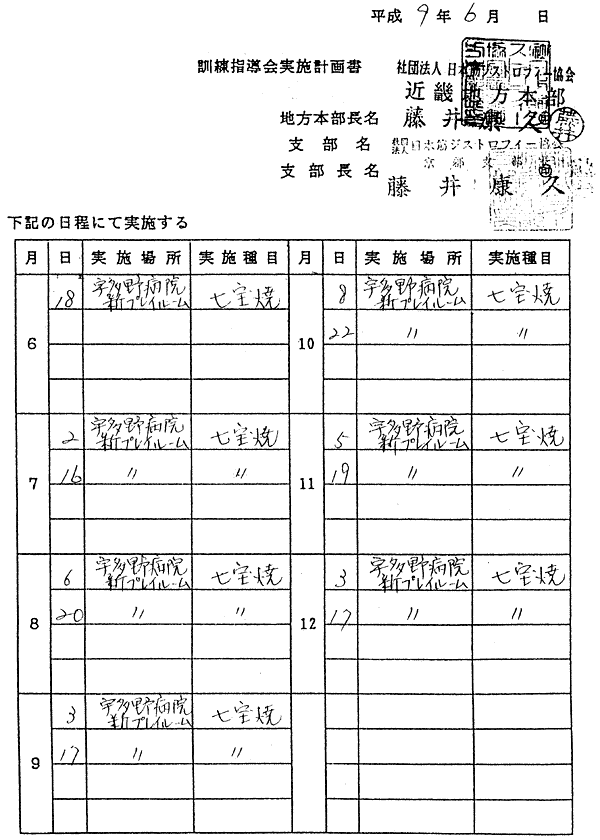 平成 9 年 6 月 日
訓練指導会実施計画書 社団法人 日本筋ジストロフィー協会
近畿地方本部
地方本部長名 藤井康久
支部名 社団法人 日本筋ジストロフィー協会
京都支部
支部長名 藤井康久
下記の日程にて実施する
月 日 実施場所 実施種目 月 日 実施場所 実施種目
6 18 宇多野病院新プレイルーム 七宝焼 10 8 宇多野病院新プレイルーム 七宝焼
22 〃 〃
7 2 宇多野病院新プレイルーム 七宝焼 11 5 宇多野病院新プレイルーム 七宝焼
16 〃 〃 19 〃 〃
8 6 宇多野病院新プレイルーム 七宝焼 12 3 宇多野病院新プレイルーム 七宝焼
20 〃 〃 17 〃 〃
9 3 宇多野病院新プレイルーム 七宝焼
17 〃 〃